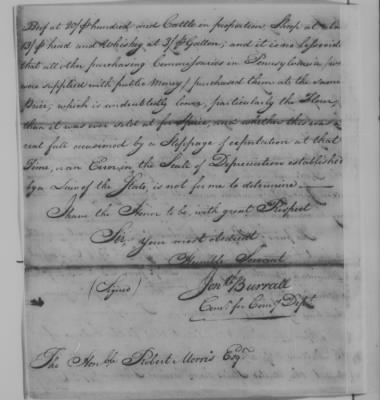 Beef at 20/ ⅌ hundred and Cattle in proportion, Sheep at
13/ ⅌ head and Whiskey at 3/ ⅌ Gallon; and it is
that all other purchasing Commissaries in Pennsylvania
were supplied with public Money) purchased them at the same
Price; which is undoubtedly lower, particularly the Flour,
than it was ever sold at and whether this was a
real fall occasioned by a Stoppage of exportation at that
Time, or an Error, in the Scale of Depreciation established
by a Law of the State, is not for me to determine.
I have the Honor to be, with great Respect
Sir, Your most obedient
Humble Servant
(Signed) Jonn Burrall
Comr for Comy Dept
The Honble Robert Morris Esqr.